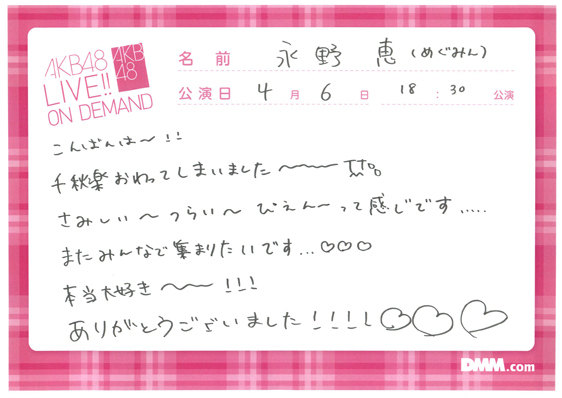 AKB48
LIVE!!
ON DEMAND
AKB
48
名前 永野 恵 (めぐみん)
公演日 4月 6日 18:30 公演
こんばんは〜!!
千秋楽おわってしまいました〜
さみしい〜つらい〜ぴえんーって感じです.....
またみんなで集まりたいです...♡♡♡
本当大好き〜!!!
ありがとうございました!!!!♡♡♡
DMM.com